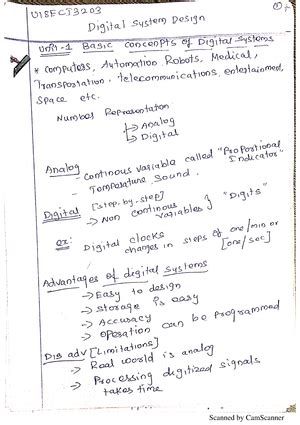 U18ECT3203
①
Digital System Design
Unit-1 Basic concenpts of Digital Systems
* computers, Automation Robots, Medical,
Transportation, Telecommunications, entertainment,
Space etc.
Number Representation
↳ Analog
↳ Digital
Analog
- Continous variable called "Proportional
Indicator"
- Temperature Sound.
Digital [step-by-step]
→ Non continous variables } "Digits"
ex: Digital clocks
changes in steps of one/min or
[one/sec]
Advantages of digital systems
→ Easy to design
→ Storage is easy
→ Accuracy
→ Operation can be programmed
Dis adv [Limitations]
→ Real world is analog
→ Processing digitized signals
takes time
Scanned by CamScanner